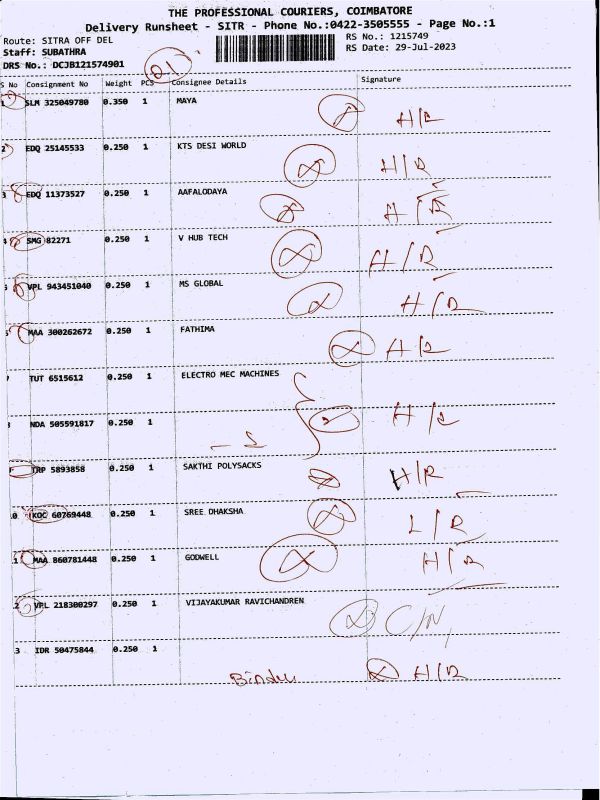 THE PROFESSIONAL COURIERS, COIMBATORE
Delivery Runsheet - SITR - Phone No.:0422-3505555 - Page No.:1
Route: SITRA OFF DEL RS No.: 1215749
Staff: SUBATHRA RS Date: 29-Jul-2023
DRS No.: DCJB121574901
S No Consignment No Weight PCS Consignee Details Signature
1 SLM 325049780 0.350 1 MAYA H/R
2 EDQ 25145533 0.250 1 KTS DESI WORLD H/R
3 EDQ 11373527 0.250 1 AAFALODAYA H/R
4 SMG 82271 0.250 1 V HUB TECH H/R
5 VPL 943451040 0.250 1 MS GLOBAL H/R
MAA 300262672 0.250 1 FATHIMA H/R
TUT 6515612 0.250 1 ELECTRO MEC MACHINES
NDA 505591817 0.250 1 H/R
TRP 5893858 0.250 1 SAKTHI POLYSACKS H/R
0 KOC 60769448 0.250 1 SREE DHAKSHA L/R
1 MAA 860781448 0.250 1 GODWELL H/R
2 VPL 218300297 0.250 1 VIJAYAKUMAR RAVICHANDREN C/N
3 IDR 50475844 0.250 1
Bindu H/R